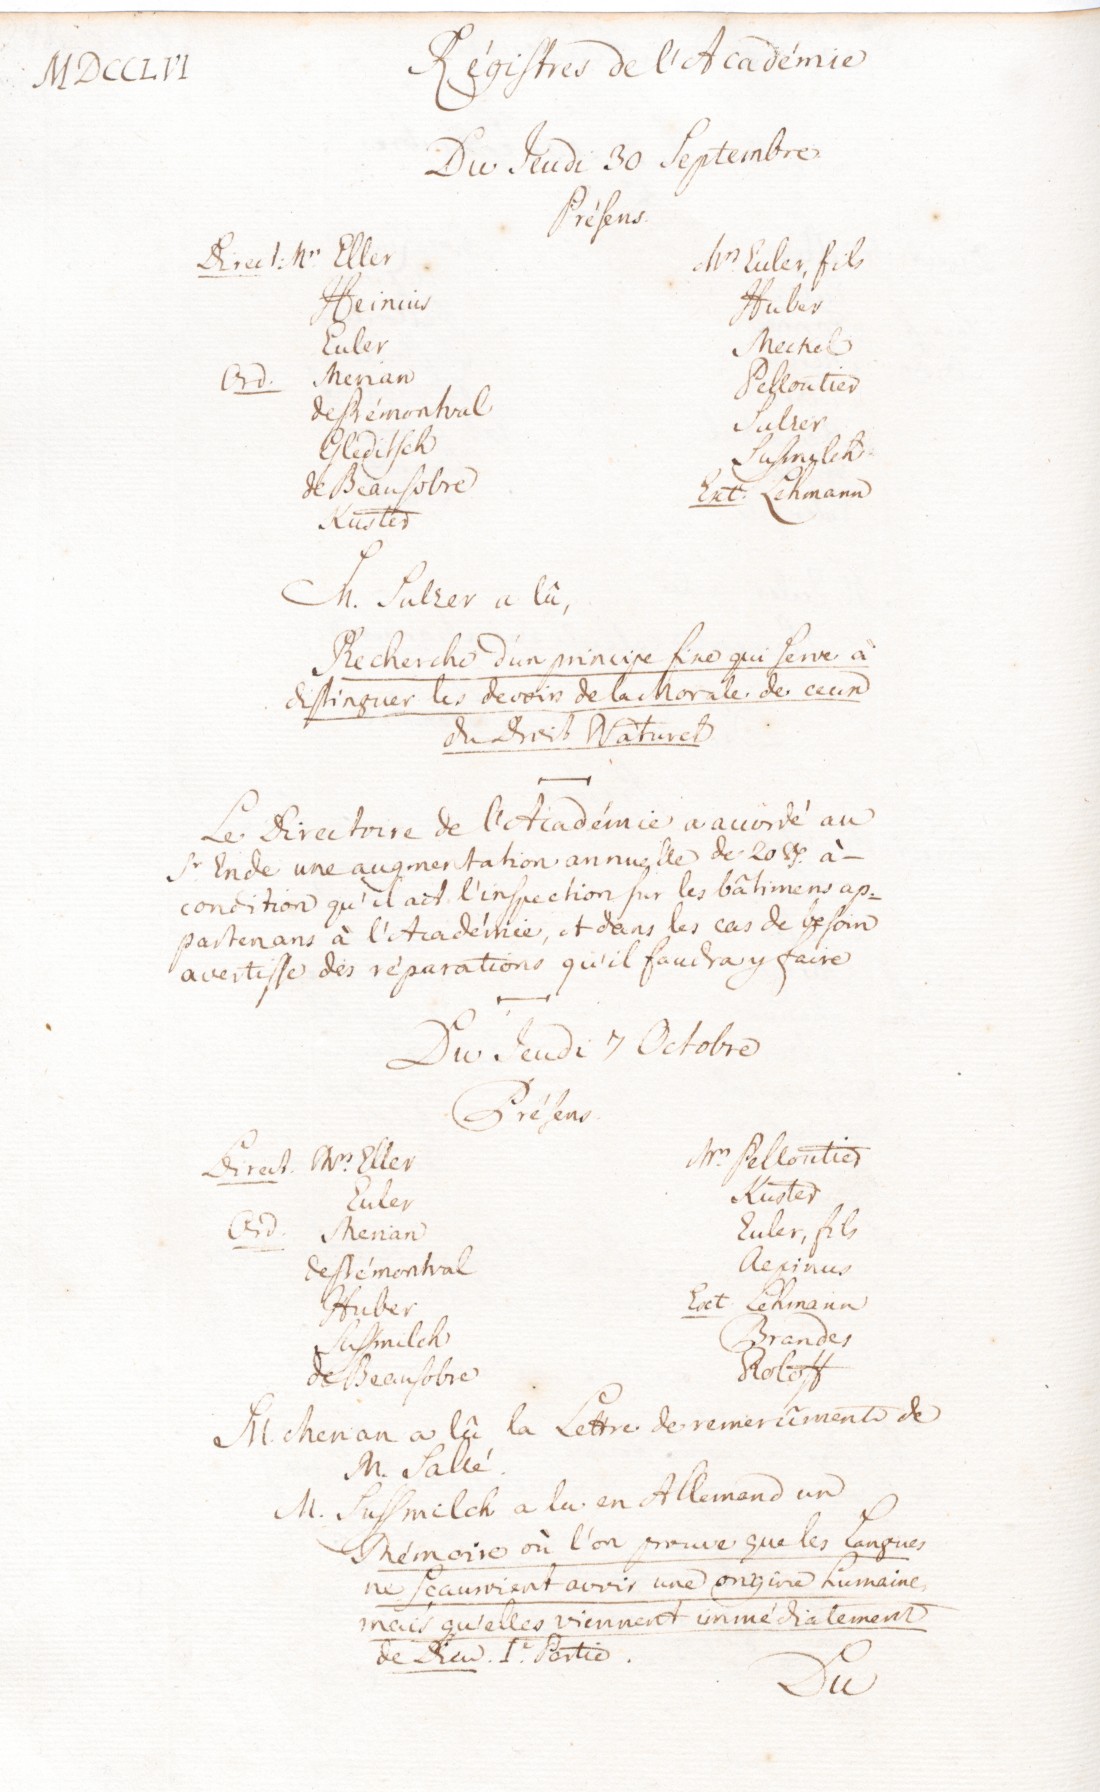 MDCCLVI
Régistres de l'Académie
Du Jeudi 30 Septembre
Présens.
Direct: Mrs Eller
Heinius
Euler
Ord. Merian
de Prémontval
Gleditsch
de Beausobre
Kuster
Mrs Euler, fils
Huber
Meckel
Pelloutier
Sulzer
Susmilch
Ext. Lehmann
M. Sulzer a lû,
Recherche d'un principe fixe qui serve à
distinguer les devoirs de la Morale de ceux
du Droit Naturel
Le Directoire de l'Académie a accordé au
Sr Ende une augmentation annuelle de 20 à
condition qu'il ait l'inspection sur les bâtimens ap=
partenans à l'Académie, et dans les cas de besoin
avertisse des réparations qu'il faudra y faire
Du Jeudi 7 Octobre
Présens.
Direct. Mrs Eller
Euler
Ord. Merian
de Prémontval
Huber
Sussmilch
de Beausobre
Mrs Pelloutier
Kuster
Euler, fils
Aepinus
Ext. Lehmann
Brandes
Roloff
M. Merian a lû la Lettre de remerciments de
M. Sallé.
M. Sussmilch a lu en Allemand un
Mémoire où l'on prouve que les Langues
ne sçauroient avoir une origine humaine,
mais qu'elles viennent immédiatement
de Dieu. Ie Partie.
Du